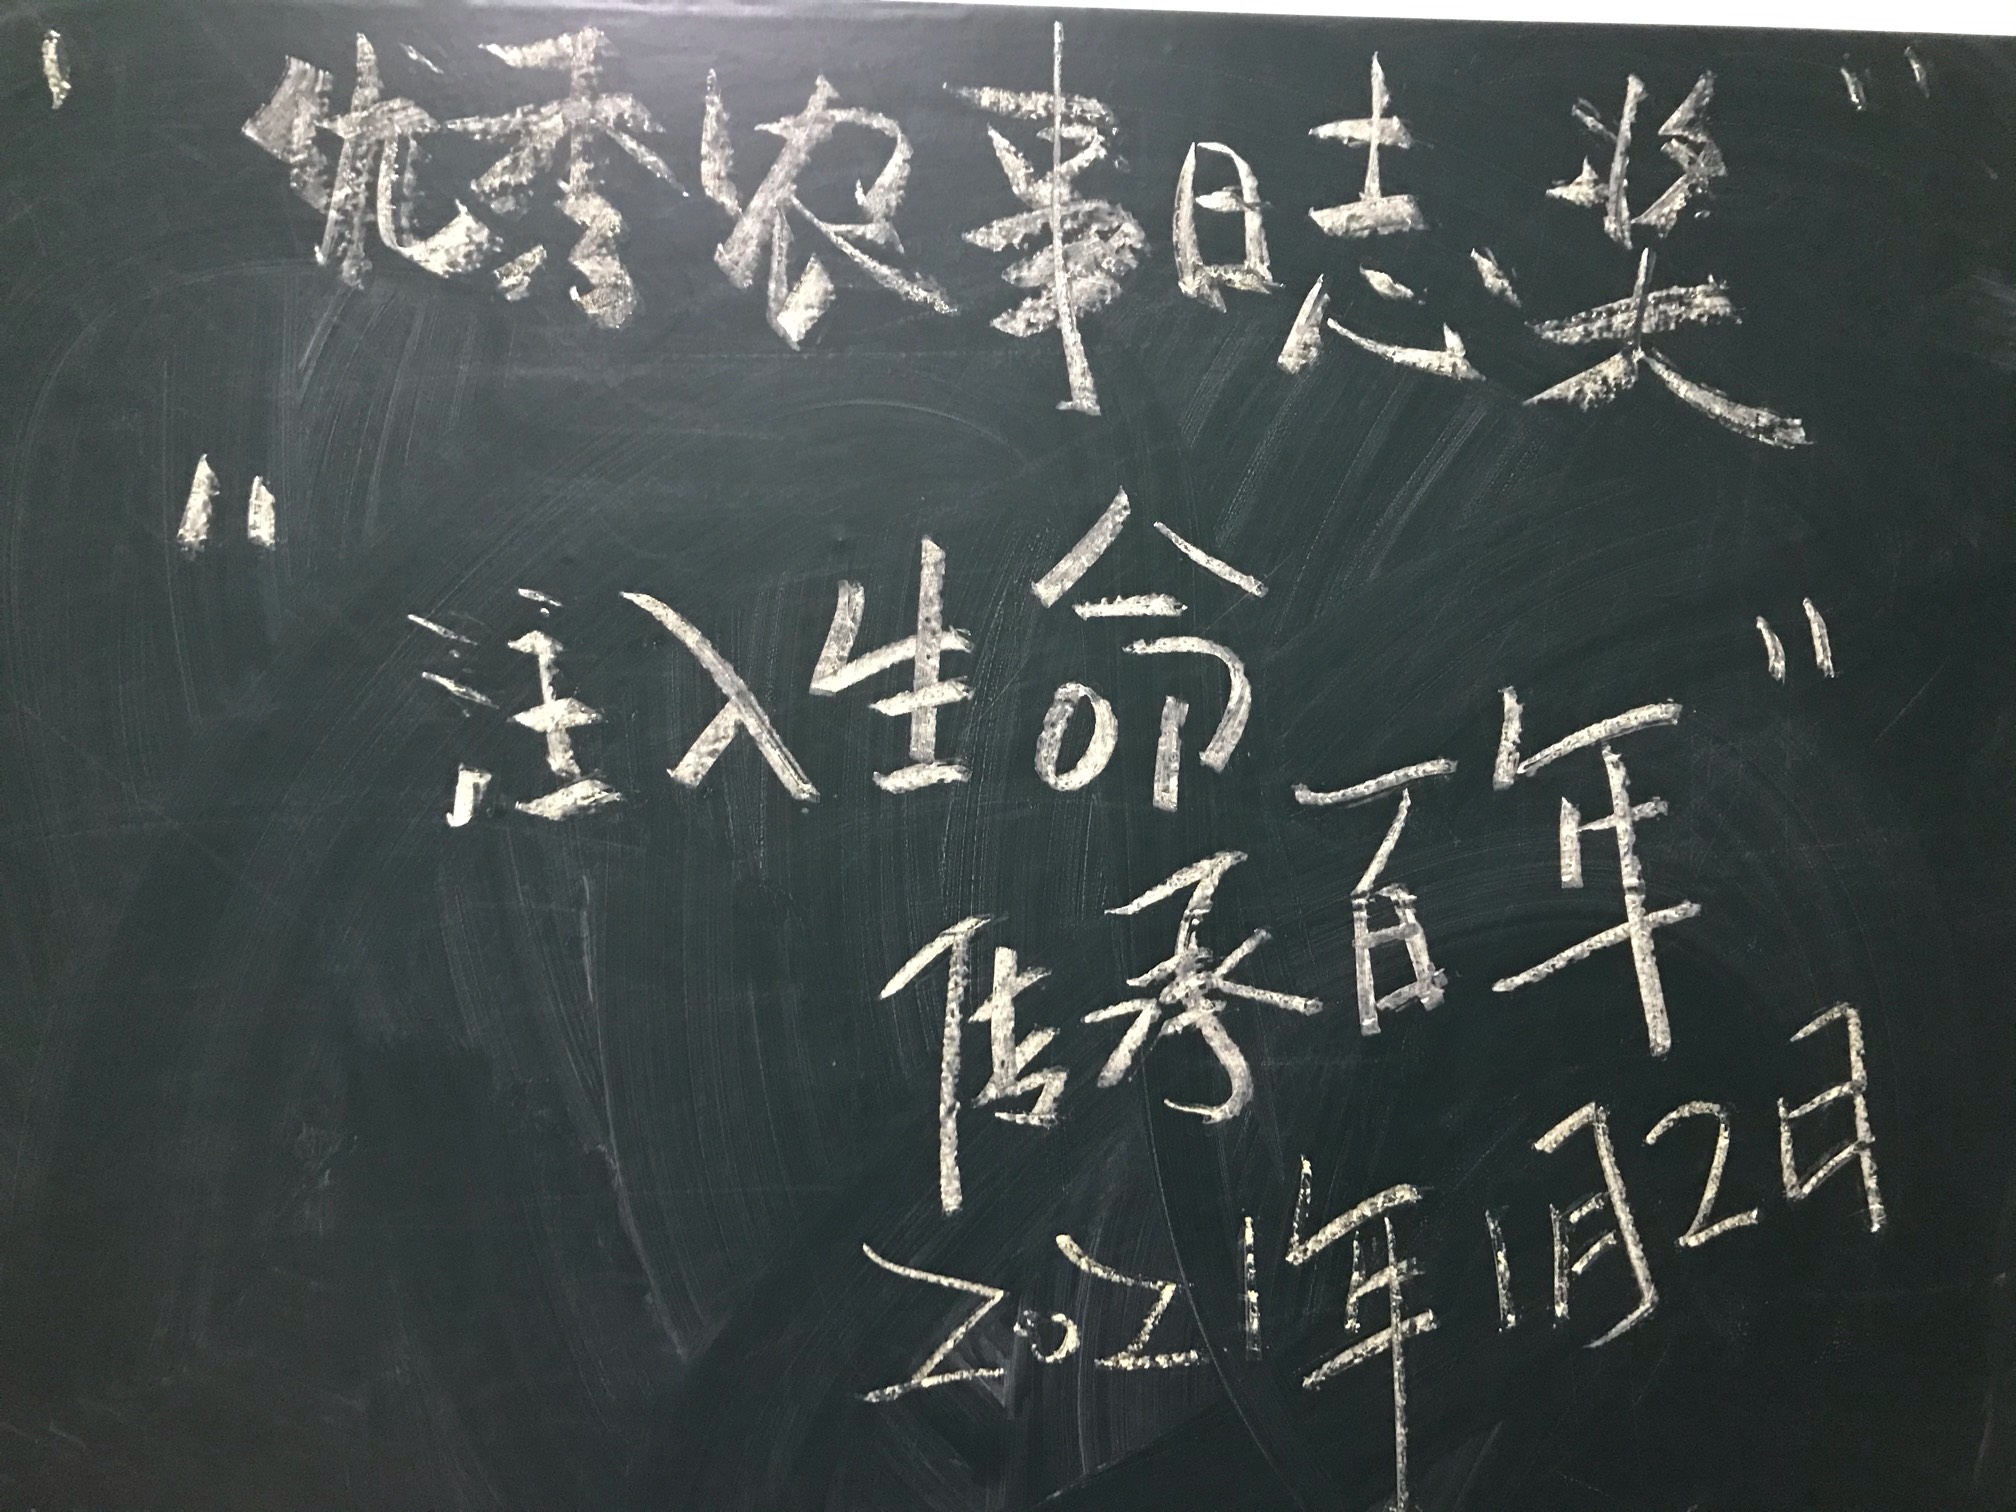 "优秀农事日志奖"
"注入生命
传承百年"
2021年1月2日